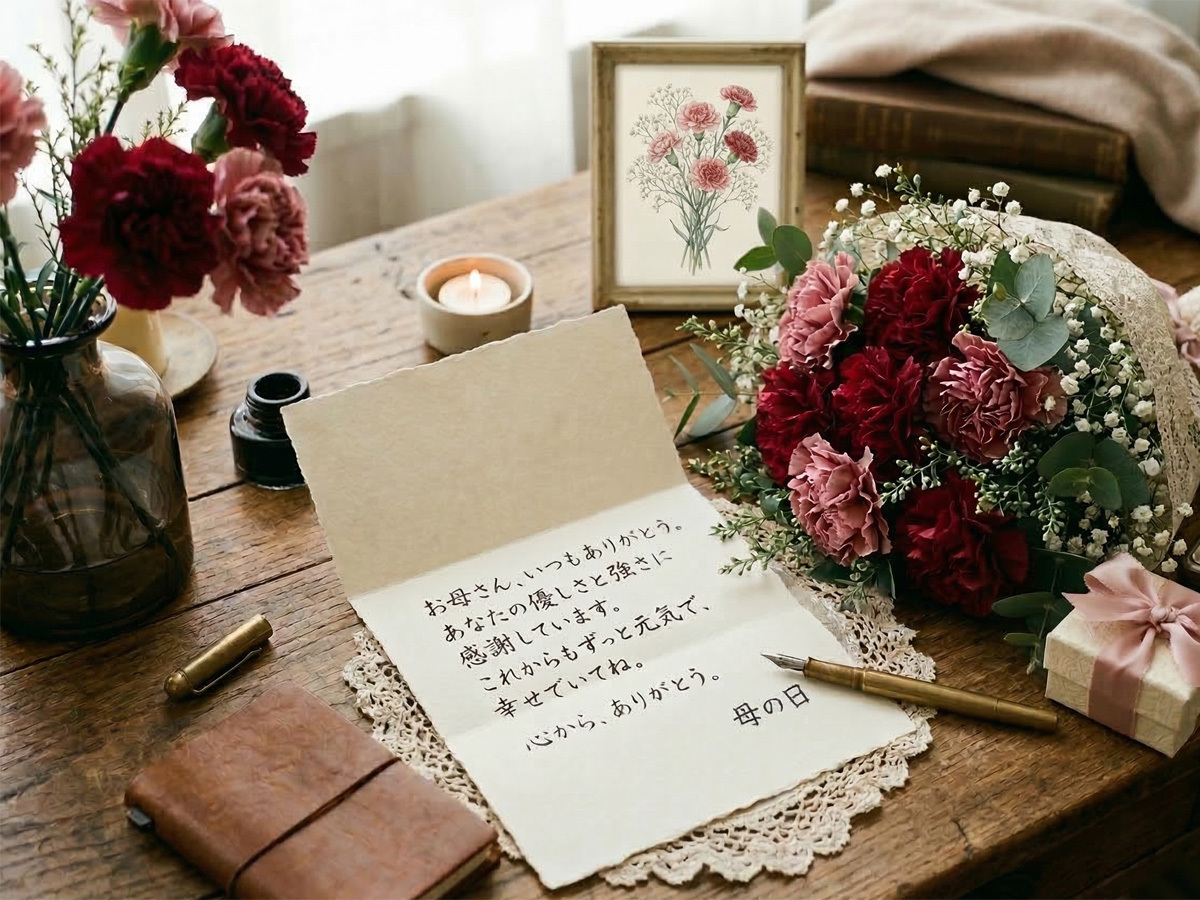 お母さん、いつもありがとう。
あなたの優しさと強さに
感謝しています。
これからもずっと元気で、
幸せでいてね。
心から、ありがとう。
母の日